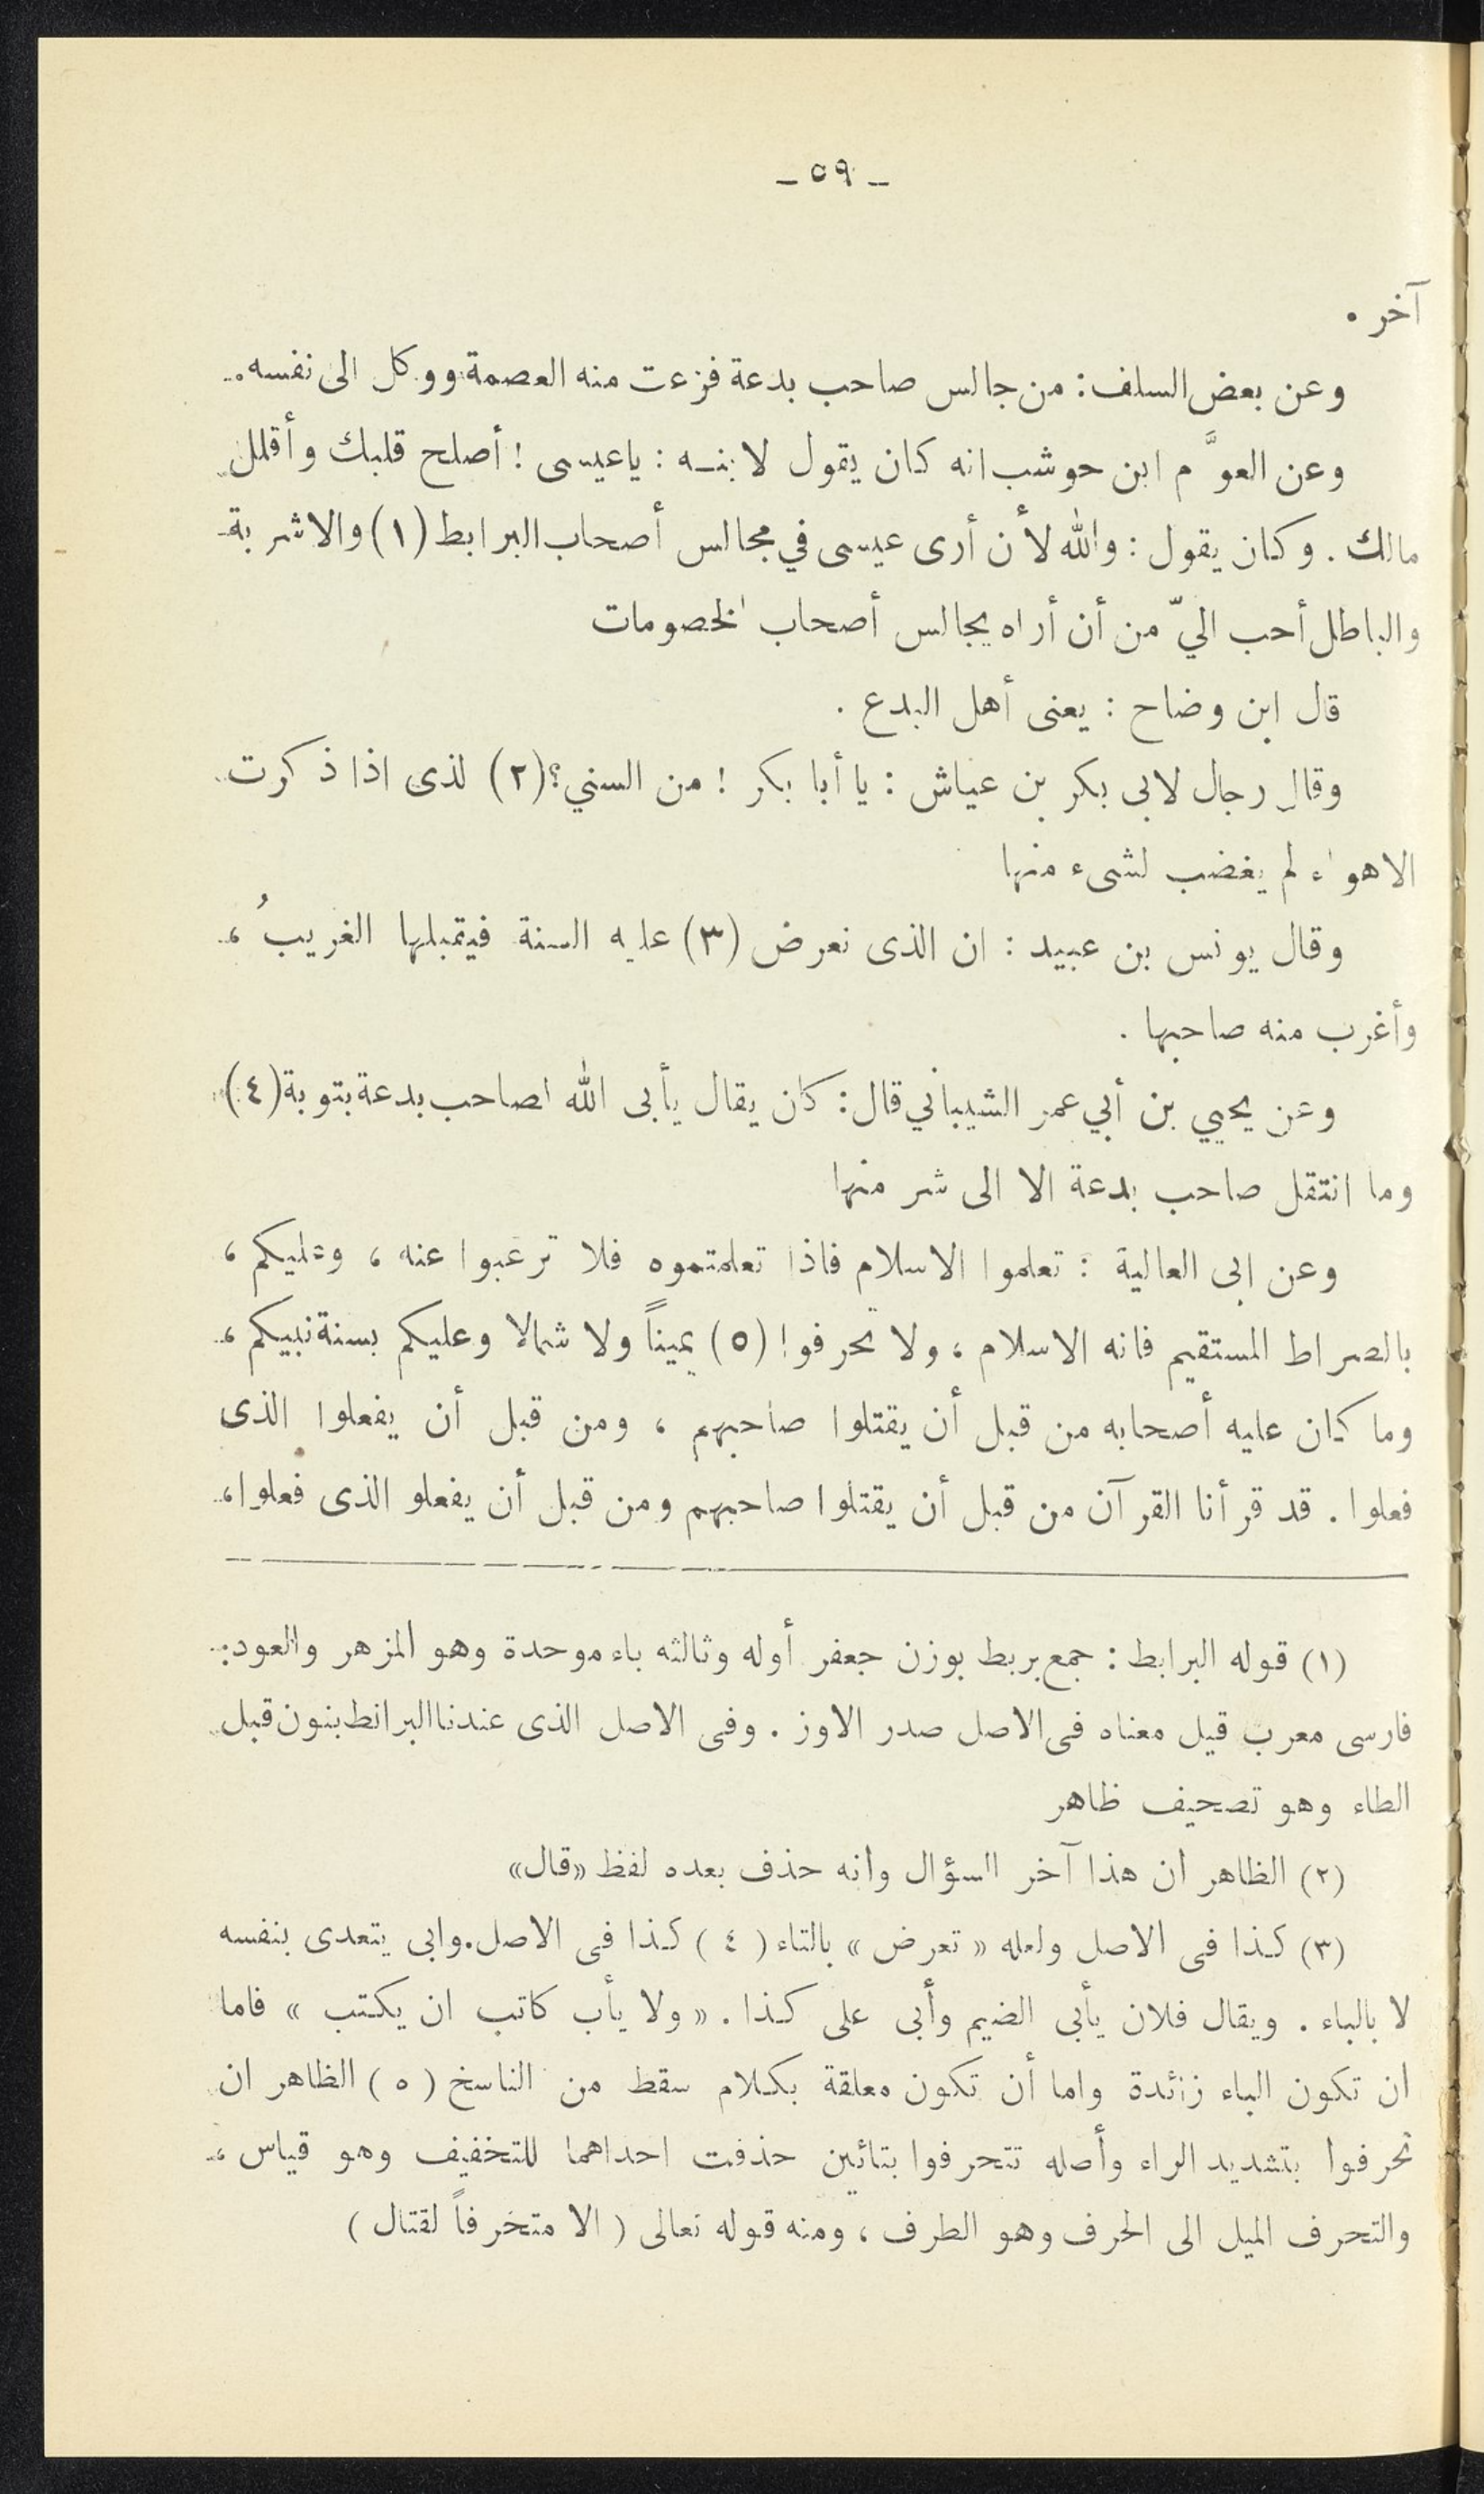 ـ ٥٩ ـ
آخر .
وعن بعض السلف : من جالس صاحب بدعة فزعت منه العصمة ووكل الى نفسه .
وعن العوَّم ابن حوشب انه كان يقول لابنه : ياعيسى ! أصلح قلبك وأقلل
مالك . وكان يقول : والله لأن أرى عيسى في مجالس أصحاب البرابط (١) والاشربة
والباطل أحب اليّ من أن أراه يجالس أصحاب الخصومات
قال ابن وضاح : يعنى أهل البدع .
وقال رجال لابى بكر بن عياش : يا أبا بكر ! من السني؟ (٢) لذى اذا ذكرت
الاهواء لم يغضب لشىء منها
وقال يونس بن عبيد : ان الذى نعرض (٣) عليه السنة فيتقبلها الغريبُ ،
وأغرب منه صاحبها .
وعن يحيي بن أبي عمر الشيباني قال : كان يقال يأبى الله لصاحب بدعة بتوبة (٤)
وما انتقل صاحب بدعة الا الى شر منها
وعن ابى العالية : تعلموا الاسلام فاذا تعلمتموه فلا ترغبوا عنه ، وعليكم ،
بالصراط المستقيم فانه الاسلام ، ولا تحرفوا (٥) يميناً ولا شمالا وعليكم بسنة نبيكم ،
وما كان عليه أصحابه من قبل أن يقتلوا صاحبهم ، ومن قبل أن يفعلوا الذى
فعلوا . قد قرأنا القرآن من قبل أن يقتلوا صاحبهم ومن قبل أن يفعلو الذى فعلوا ،
(١) قوله البرابط : جمع بربط بوزن جعفر أوله وثالثه باء موحدة وهو المزهر والعود :
فارسى معرب قيل معناه فى الاصل صدر الاوز . وفى الاصل الذى عندنا البرانط بنون قبل
الطاء وهو تصحيف ظاهر
(٢) الظاهر ان هذا آخر السؤال وانه حذف بعده لفظ «قال»
(٣) كذا فى الاصل ولعله « تعرض » بالتاء ( ٤ ) كذا فى الاصل . وابى يتعدى بنفسه
لا بالباء . ويقال فلان يأبى الضيم وأبى على كذا . « ولا يأب كاتب ان يكتب » فاما
ان تكون الباء زائدة واما أن تكون معلقة بكلام سقط من الناسخ ( ٥ ) الظاهر ان
تحرفوا بتشديد الراء وأصله تتحرفوا بتائين حذفت احداهما للتخفيف وهو قياس ،
والتحرف الميل الى الحرف وهو الطرف ، ومنه قوله تعالى ( الا متخرفاً لقتال )